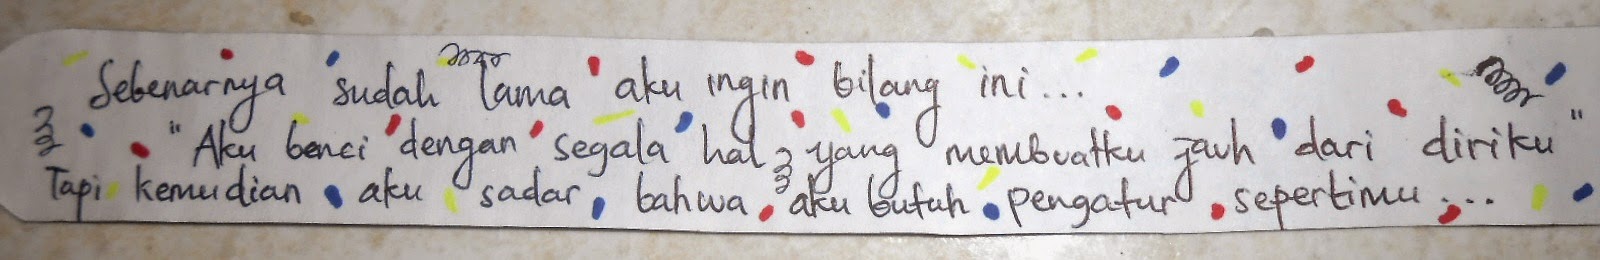 Sebenarnya sudah lama aku ingin bilang ini...
"Aku benci dengan segala hal yang membuatku jauh dari diriku"
Tapi kemudian aku sadar, bahwa aku butuh pengatur sepertimu...